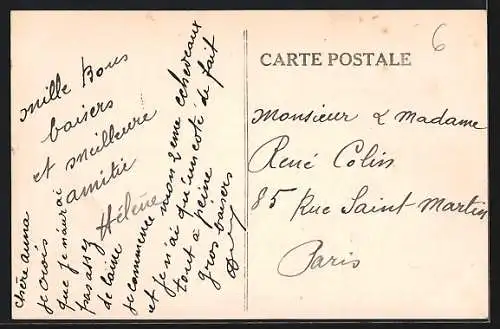 Mille Bons
baisers
et meilleure
amitié
Hélène
chère anna
je crois
que je n'aurai
pas assez
de laine
je commence mon 2eme echeveaux
et je n'ai qu'un coté de fait
tout à peine
gros baisers
CARTE POSTALE
6
Monsieur & Madame
René Colin
85 Rue Saint Martin
Paris